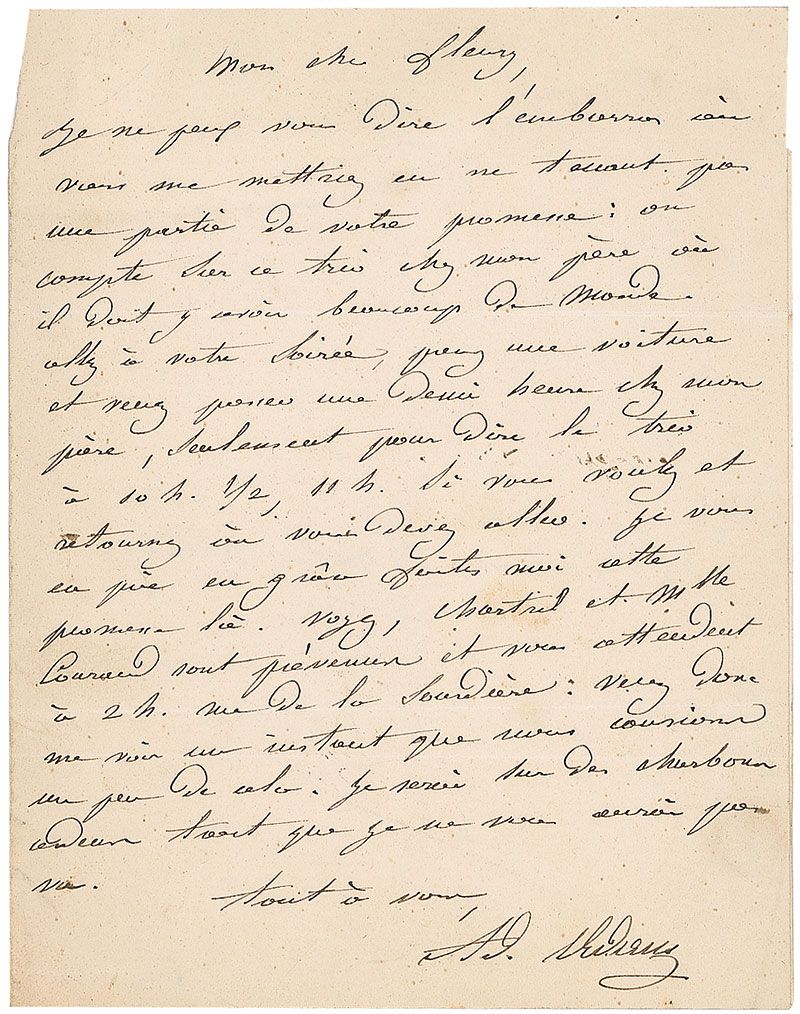 Mon cher fleury,
Je ne peux vous dire l'embarras où
vous me mettriez en ne tenant pas
une partie de votre promesse : on
compte sur ce trio chez mon père où
il doit y avoir beaucoup de monde.
allez à votre soirée, prenez une voiture
et venez passer une demi heure chez mon
père, seulement pour dire le trio
à 10 h. 1/2, 11 h. si vous voulez et
retournez où vous devez aller. Je vous
en prie en grâce faites moi cette
promesse là. Voyez, et Mlle
sont prévenus et vous attendent
à 2 h. rue de la Sourdière : venez donc
me voir un instant que nous causions
un peu de cela. Je serai sur des charbons
ardens tant que je ne vous aurai pas
vu.
tout à vous,
Ad.